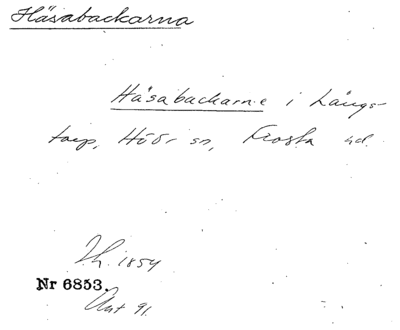 Häsabackarna
Häsabackarne i Långs-
torp, Höör sn, Frosta hd.
Th. 1854
Nr 6853.
Ant 91.